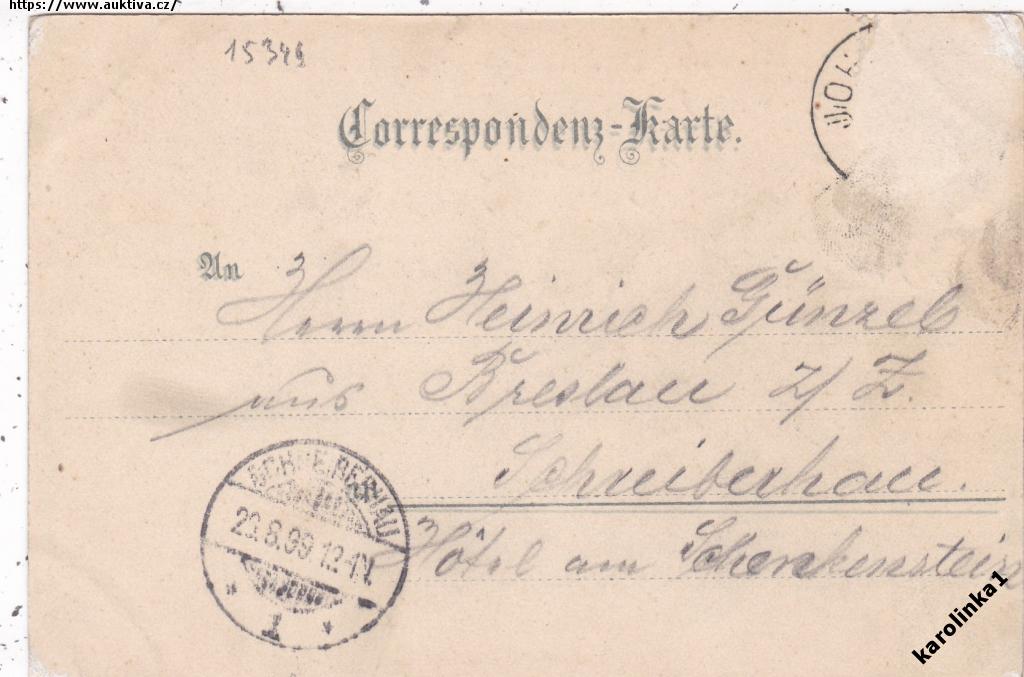 https://www.auktiva.cz/
15349
Correspondenz-Karte.
An
Herrn Heinrich Günzel
aus Breslau z/Z.
Schreiberhau.
Hôtel am
SCHREIBERHAU
29.8.99 12-1N.
karolinka1